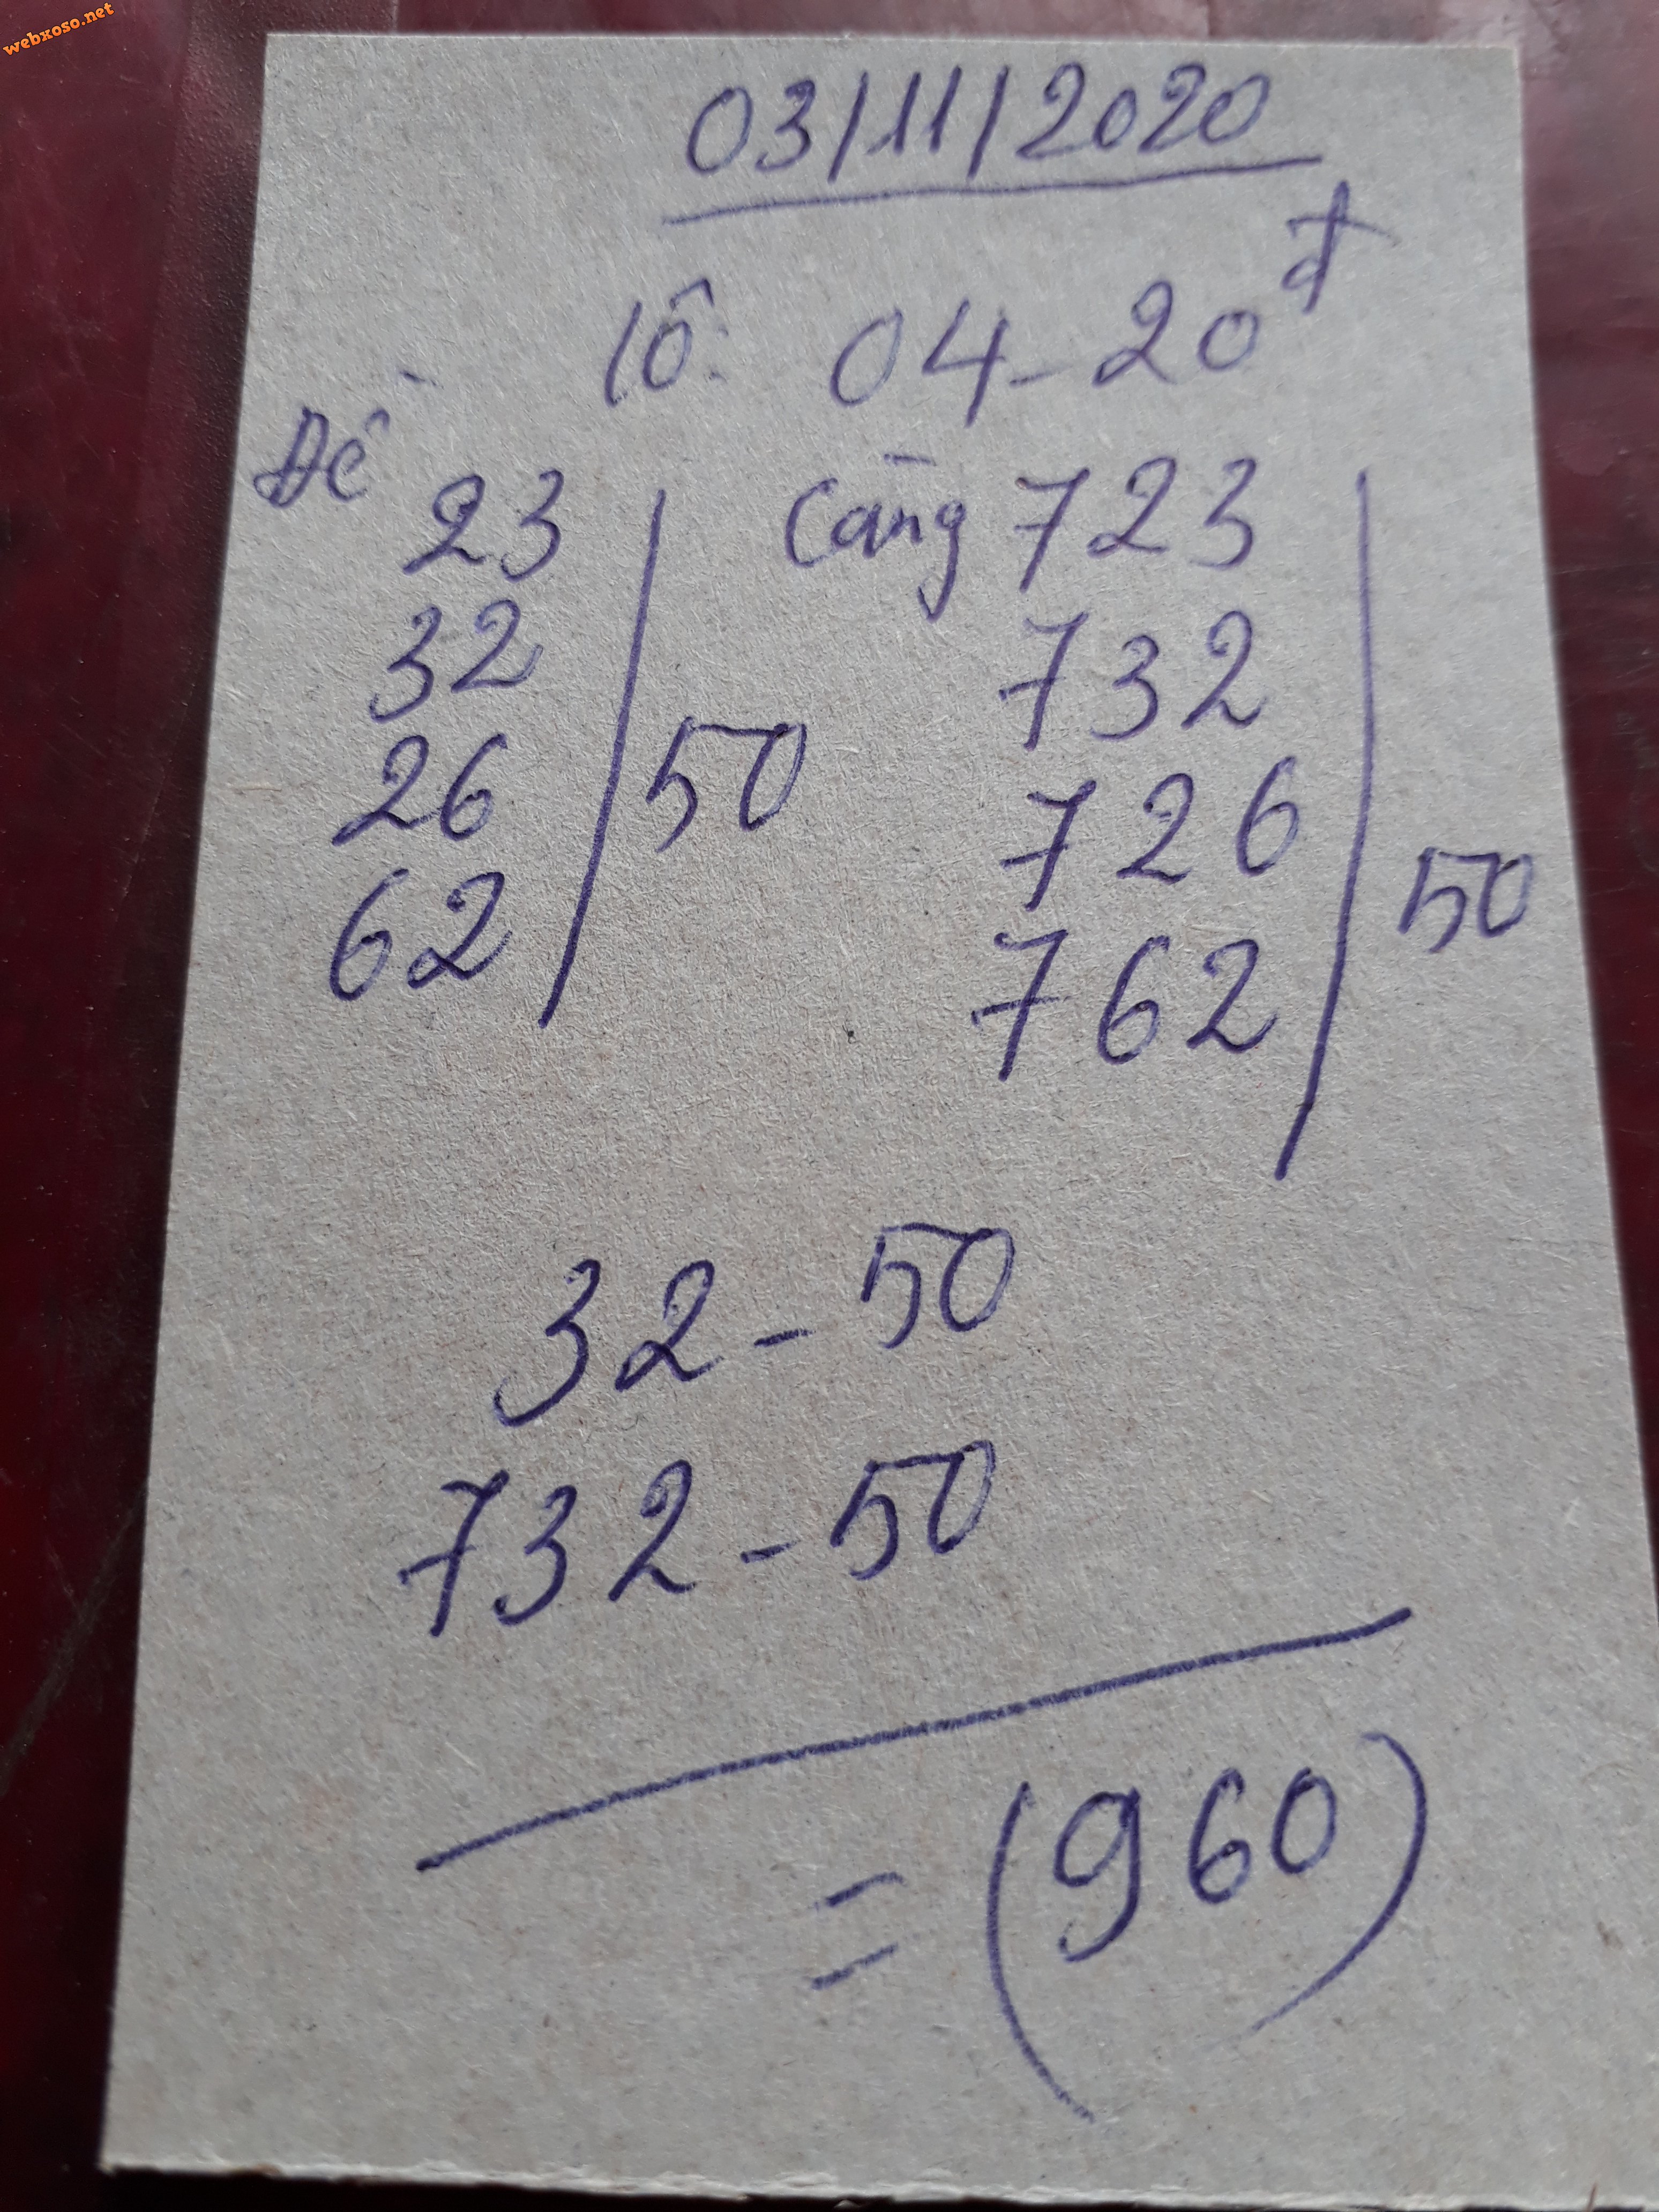 webxoso.net
03/11/2020
lô: 04-20đ
Đề
23
32
26
62
50
Càng 723
732
726
762
50
32-50
732-50
= (960)